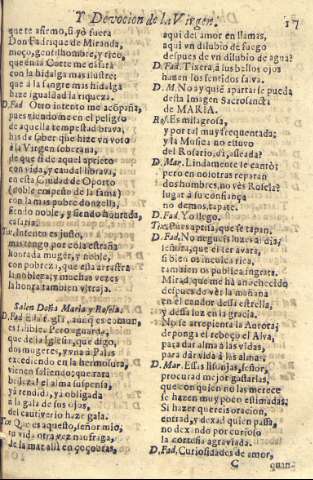 Y Devocion de la Virgen. 17
que te afirmo, q̃ yò fuera
Don Fadrique de Miranda,
moço, gentilhombre, y rico,
que en la Corte me casàra
con la hidalga mas ilustre;
que à la sangre mas hidalga
haze igualdad la riqueza.
D. Fad. Otro intento me acõpaña,
pues viendome en el peligro
de aquella tempestad brava,
has de saber que hize un voto
à la Virgen soberana,
que si de aquel aprieto
con vida, y caudal librava,
en esta Ciudad de Oporto
(noble empeño de la fama)
con la mas pobre donzella,
siendo noble, y siendo honrada,
casaria.
Tix. Intento es justo,
mas tengo por cosa estraña
honrada muger, y noble,
con pobreza; que esta arrastra
la nobleza, y muchas vezes
la honra tambien ultraja.
Salen Doña Maria y Rosela.
D. Fad.
es infalible. Pero aguarda,
que de la Iglesia, que digo,
dos mugeres, y una à Palas
excediendo en la hermosura,
vienen saliendo
el alma suspensa,
yà rendida, yà obligada
à la gala de sus ojos,
del cautiverio haze gala.
Tix. Que es aquesto, señor mio,
tu vida otra vez naufraga,
aqui del amor en llamas,
aqui un dilubio de fuego
despues de un diluvio de agua?
D. Fad. Tixera, à sus bellos ojos
hazen los sentidos salva.
D. M. No ay quiẽ apartarse pueda
desta Imagen Sacrosancta
de MARIA.
Ros. Es milagrosa,
y por tal muy frequentada;
y la Musica no estuvo
del Rosario, di, asseada?
D. Mar. Lindamente se cantò;
pero en nosotras reparan
dos hombres, no vès Rosela?
lugar à su confiança
no demos, tapate.
D. Fad. Yo llego.
Tix. Pues aprissa, que se tapan.
D. Fad. No negueis luzes al dia,
señora, que el ser avara,
si bien os indica rica,
tambien os publica ingrata.
Mirad, que me hà anochecido
despues de vèr la mañana
en el candor dessa estrella,
y dessa luz en la gracia.
No se arrepienta la Autora;
deponga el reboço el Alva,
para dar alma à las vidas,
para dàr vida à las almas.
D. Mar. Essas lisonjas, señor,
procurad mejor gastarlas,
que con quien no las merece
se hazen muy poco estimadas:
Si hazer quereis oracion,
entrad, y dexad quien passa,
no dexando por curioso
la cortesia agraviada.
D. Fad. Curiosidades de amor,
C quan-